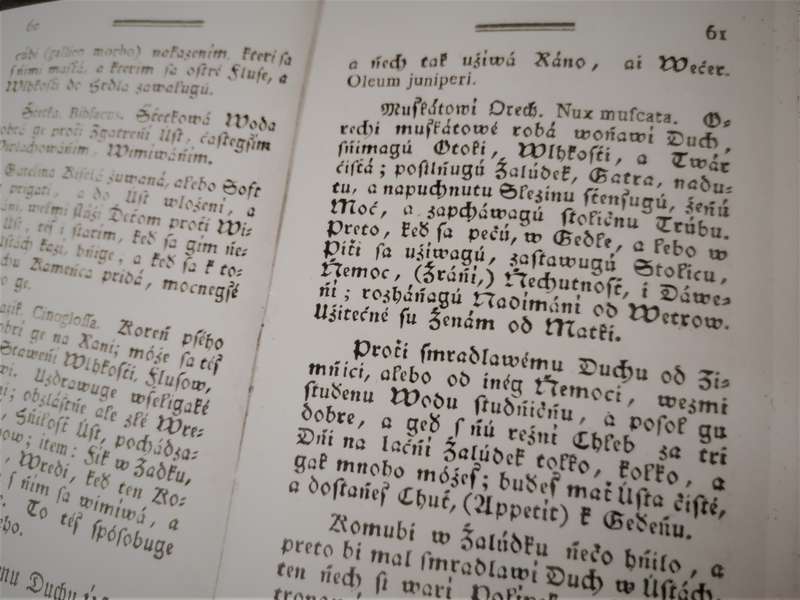 60
cúbi (gallico morbo) nakazením, kterí sa
sňimi mastá, a kterím sa ostré Fluse, a
Wlhkosti do Hrdla zawalugú.
Woda
dobrá ge proťi Zgatreňí Úst, častegším
Wimíwáňím.
žuwaná, alebo Soft
prigatí, a do Úst wloženi, a
welmi slúži Ďeťom proťi
Úst, téš i starím, keď sa gim
kazí, hňige, a keď sa k to-
Kameňca pridá, mocnegšé
ge.
Cinoglossa. Koreň psího
dobrí ge na Rani; móže sa téš
Staweňí Wlhkosti, Flusow,
Uzdrawuge wšeligaké
obzlášťňe ale zlé Wre-
Shňilosť Úst, pochádza-
item: Fík w Zadku,
Wredi, keď ten Ko-
s ňím sa wimíwá, a
To téš spósobuge
61
a ňech tak užíwá Ráno, ai Wečer.
Oleum juniperi.
Muškátowí Orech. Nux muscata. O-
rechi muškátowé robá woňawí Duch,
sňímagú Otoki, Wlhkosti, a Twár
čistá; posilňugú Žalúdek, Gatra, nadu-
tu, a napuchnutu Slezinu stenšugú, ženú
Moč, a zapcháwagú stoličnu Trúbu.
Preto, keď sa pečú, w Gedle, a lebo w
Piťí sa užíwagú, zastawugú Stolicu,
Ňemoc, (Žráňí,) Ňechutnosť, i Dáwe-
ňí; rozháňagú Nadímáňí od Wetrow.
Užitečné su Ženám od Matki.
Proťi smradlawému Duchu od Zi-
mňici, alebo od inég Ňemoci, wezmi
studenu Wodu studňičňu, a posol gu
dobre, a geď s ňú režní Chleb za tri
Dňi na lační Žalúdek tolko, kolko, a
gak mnoho móžeš; budeš mať Ústa čisté,
a dostaňeš Chuť, (Appetit) k Gedeňu.
Komubi w Žalúdku ňečo hňilo, a
preto bi mal smradlawí Duch w Ústách,
ten ňech si warí